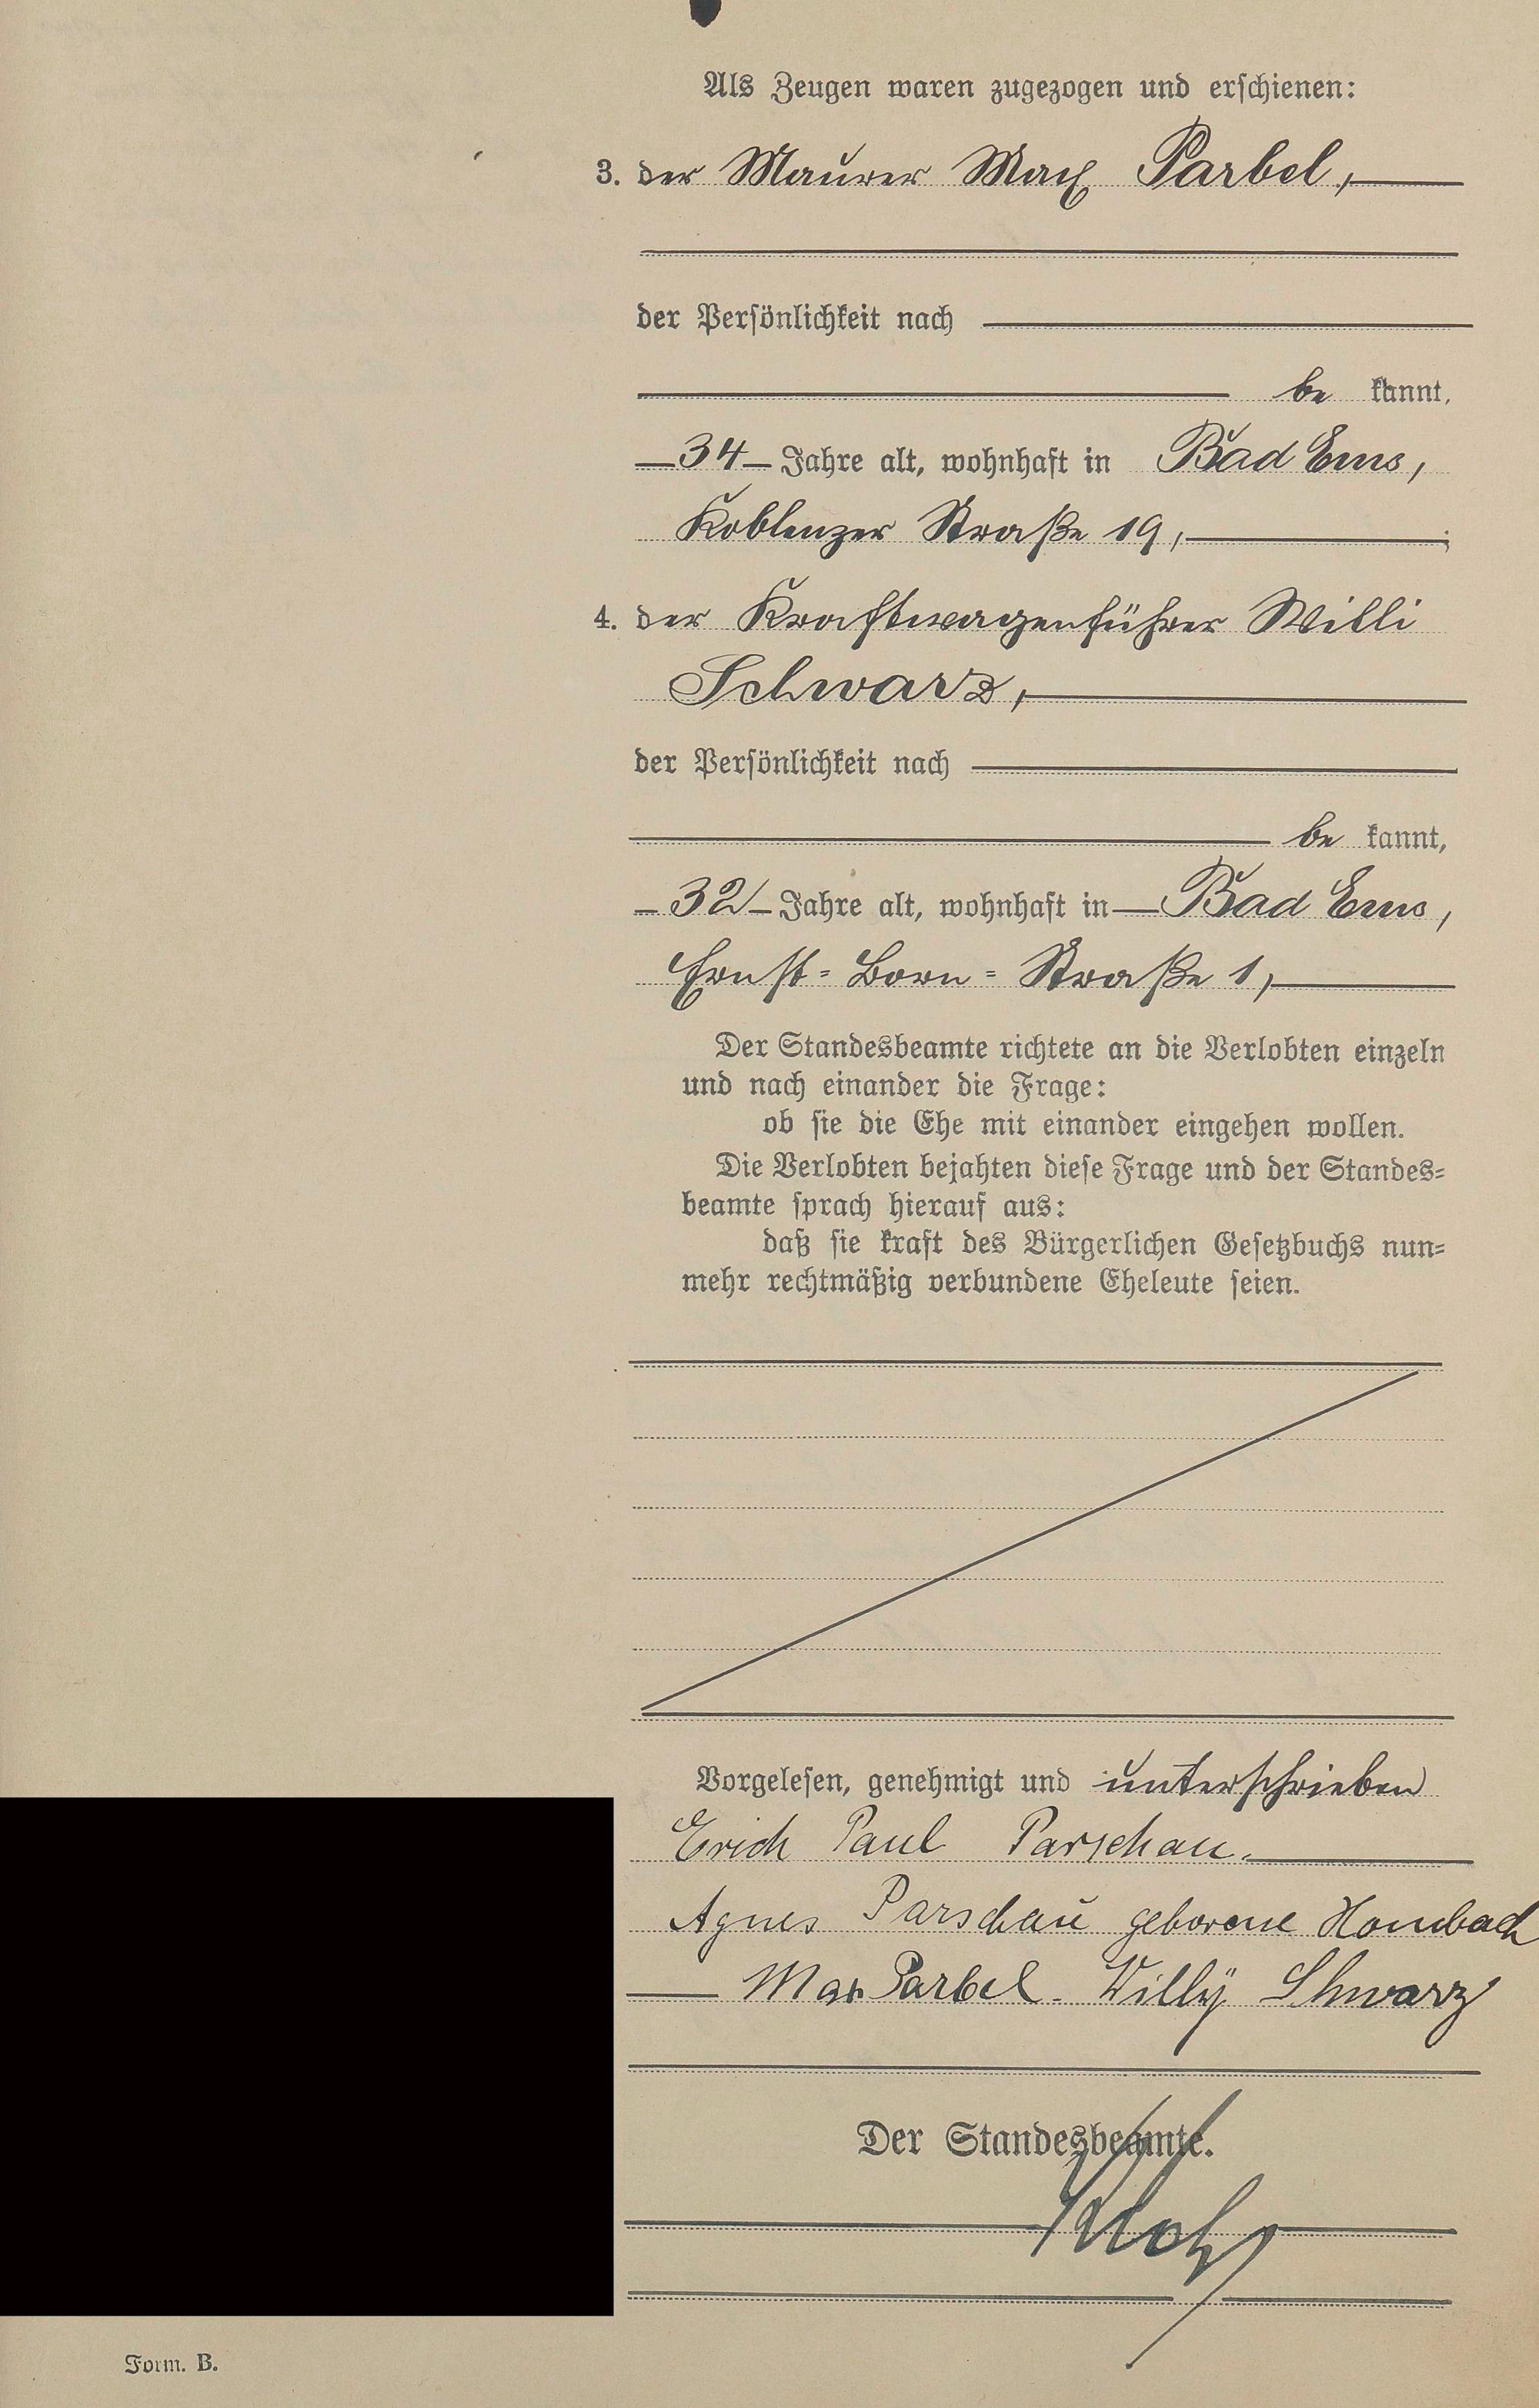 Als Zeugen waren zugezogen und erschienen:
3. der Maurer Max Parbel,
der Persönlichkeit nach
be kannt,
34 Jahre alt, wohnhaft in Bad Ems,
Koblenzer Straße 19, ;
4. der Kraftwagenführer Willi
Schwarz,
der Persönlichkeit nach
be kannt,
32 Jahre alt, wohnhaft in Bad Ems,
Ernst-Born-Straße 1,
Der Standesbeamte richtete an die Verlobten einzeln
und nach einander die Frage:
ob sie die Ehe mit einander eingehen wollen.
Die Verlobten bejahten diese Frage und der Standes-
beamte sprach hierauf aus:
daß sie kraft des Bürgerlichen Gesetzbuchs nun-
mehr rechtmäßig verbundene Eheleute seien.
Vorgelesen, genehmigt und unterschrieben
Erich Paul Parschau.
Agnes Parschau geborene Hombach
Max Parbel. Willy Schwarz
Der Standesbeamte.
Form. B.